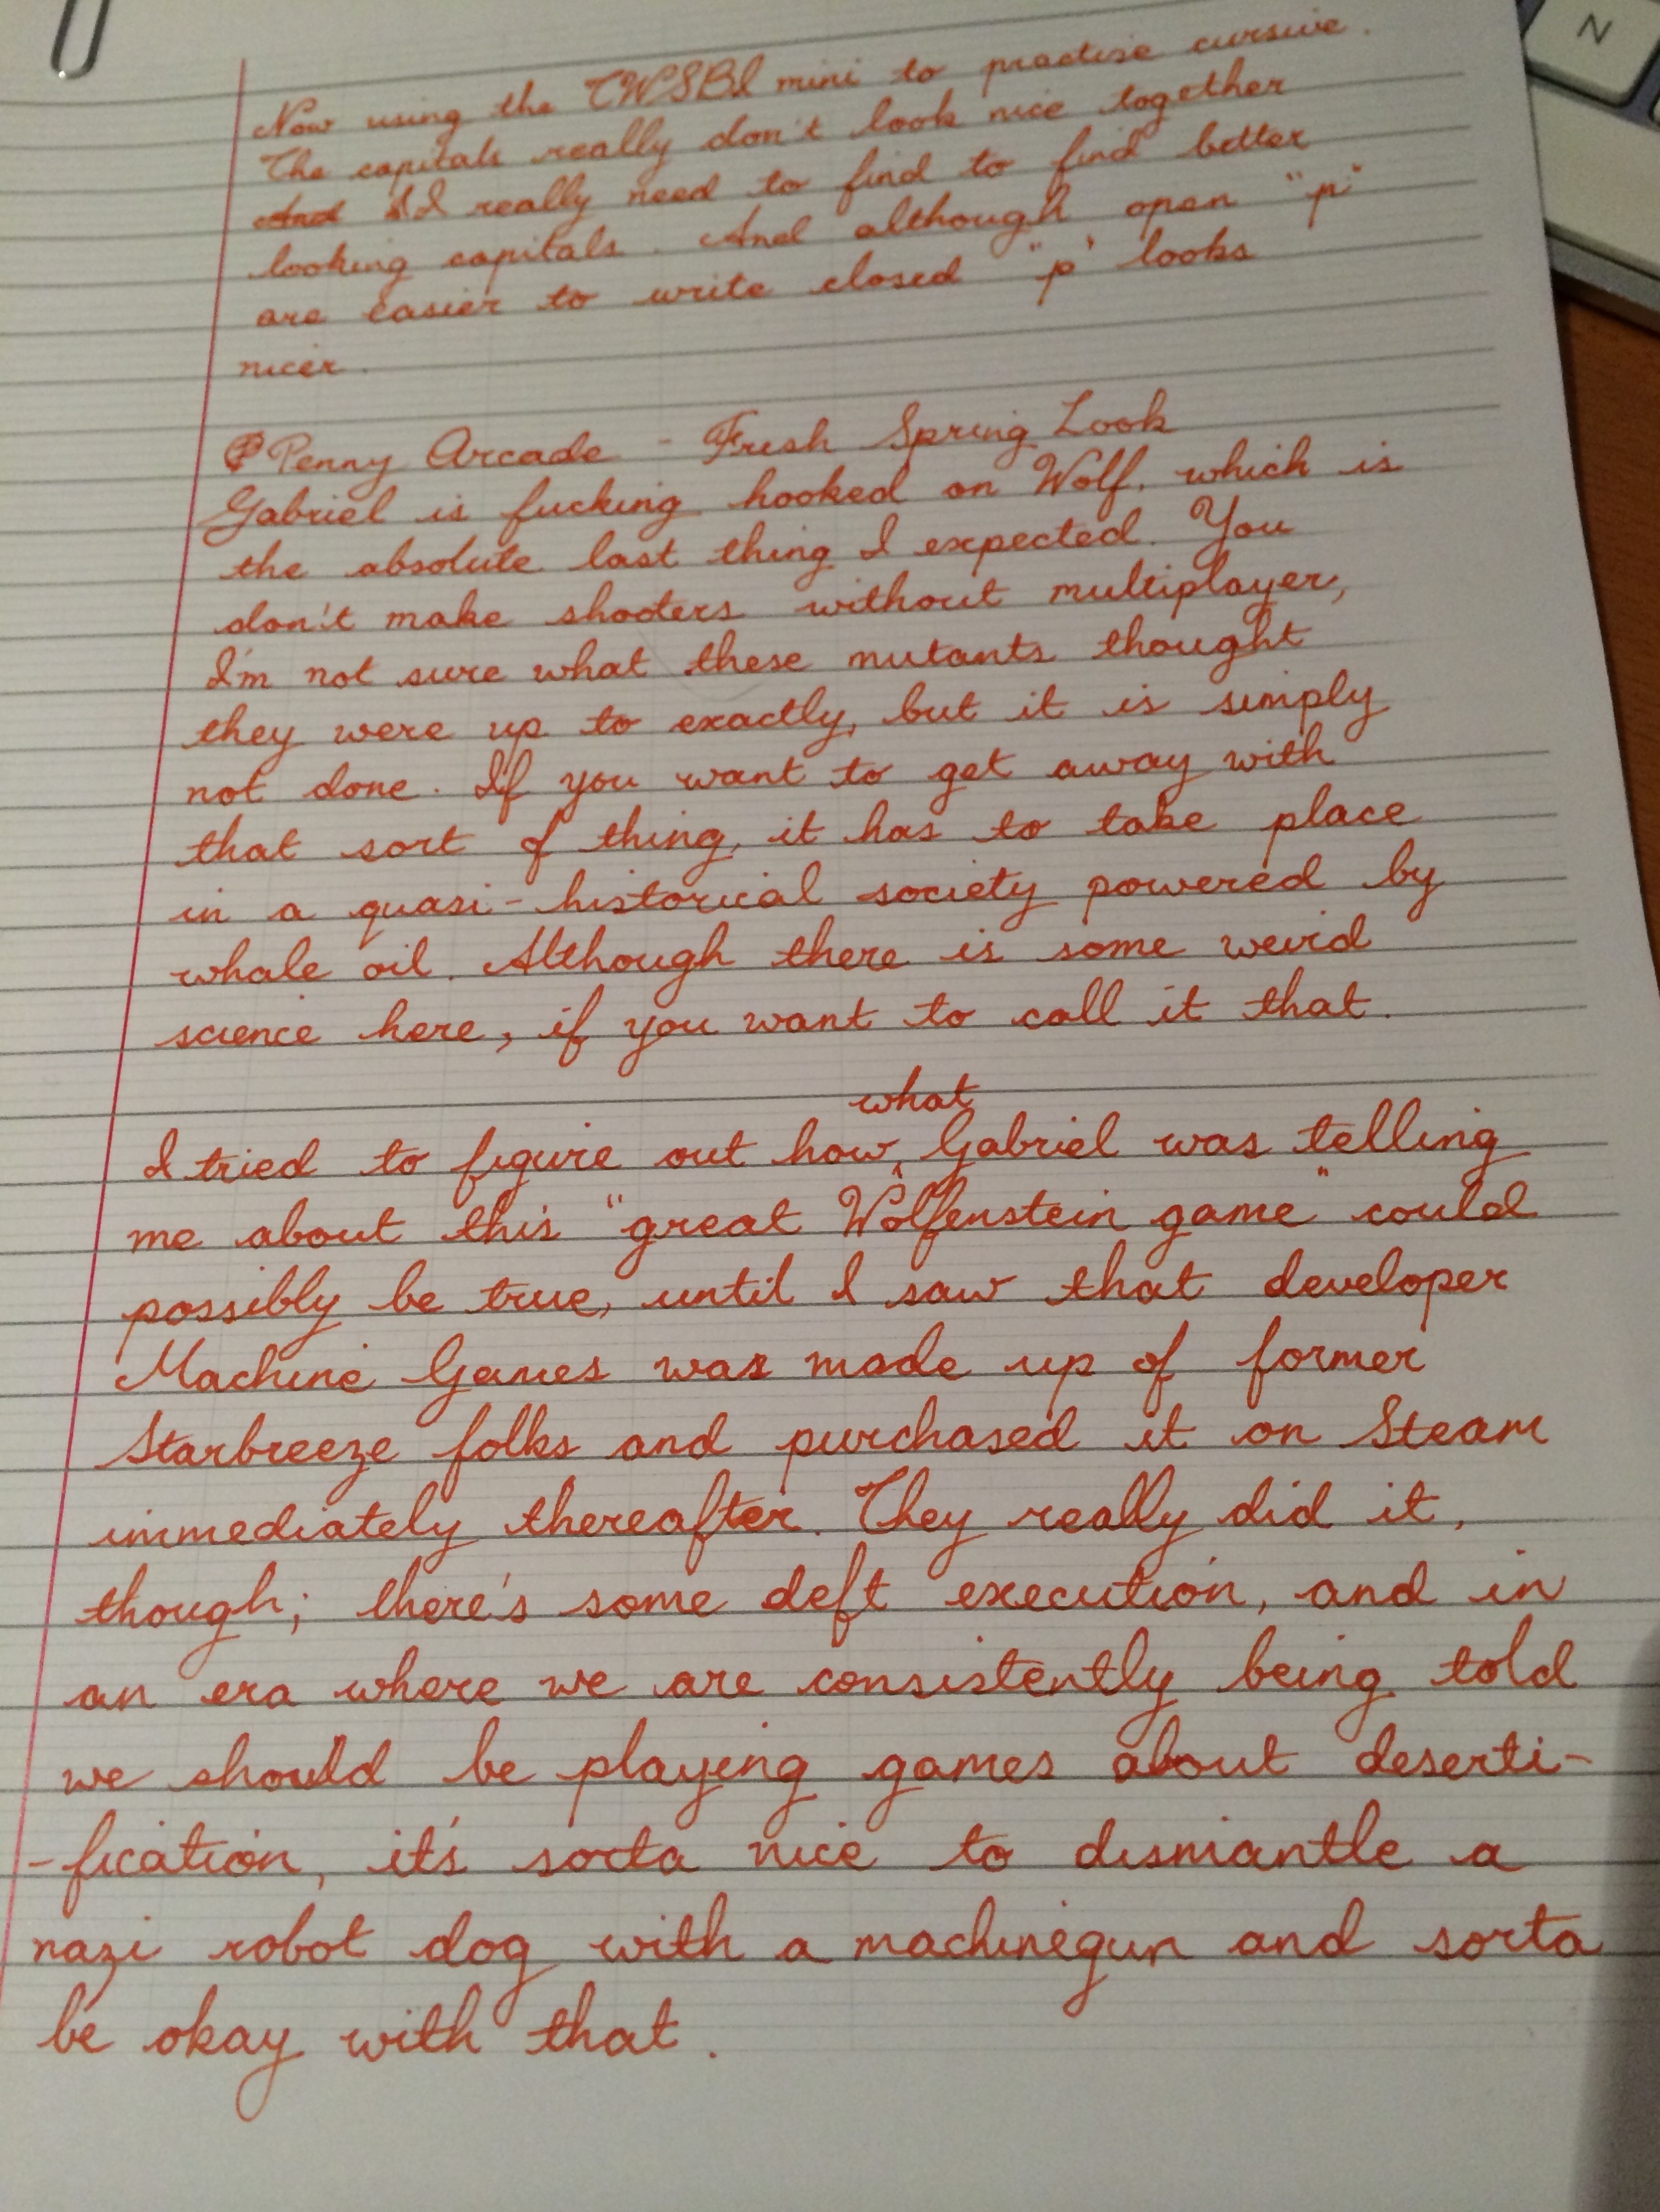 Now using the TWSBI mini to practise cursive.
The capitals really don't look nice together
And I I really need to find to find better
looking capitals. And although open "p"
are easier to write closed "p" looks
nicer.
P Penny Arcade - Fresh Spring Look
Gabriel is fucking hooked on Wolf, which is
the absolute last thing I expected. You
don't make shooters without multiplayer,
I'm not sure what these mutants thought
they were up to exactly, but it is simply
not done. If you want to get away with
that sort of thing, it has to take place
in a quasi-historical society powered by
whale oil. Although there is some weird
science here, if you want to call it that.
what
I tried to figure out how ^ Gabriel was telling
me about this "great Wolfenstein game" could
possibly be true, until I saw that developer
Machine Games was made up of former
Starbreeze folks and purchased it on Steam
immediately thereafter. They really did it,
though; there's some deft execution, and in
an era where we are consistently being told
we should be playing games about deserti-
-fication, it's sorta nice to dismantle a
nazi robot dog with a machinegun and sorta
be okay with that.
N